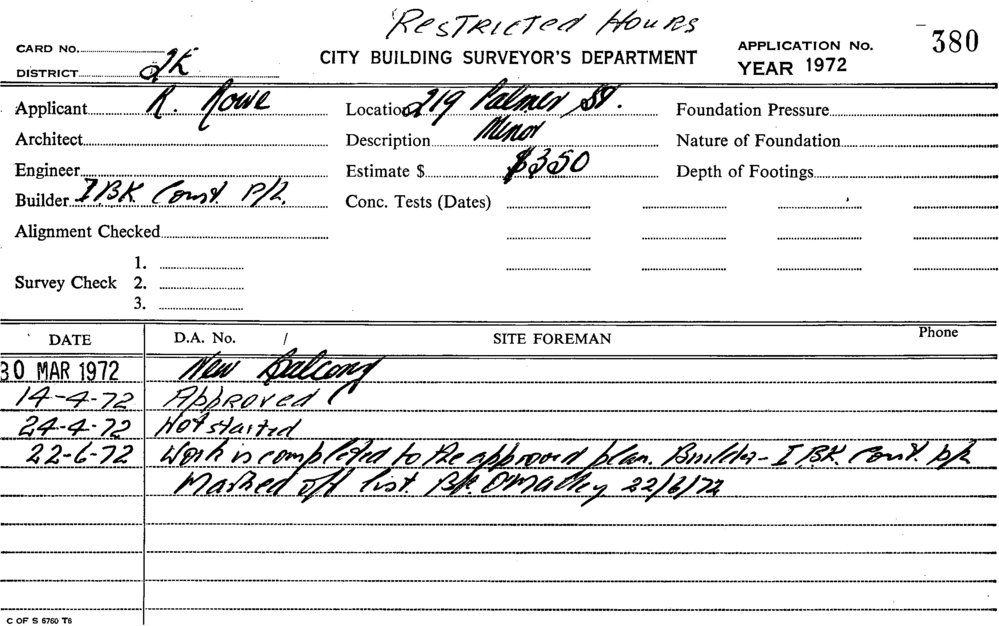 Restricted Hours
CARD No.
DISTRICT 2K
CITY BUILDING SURVEYOR'S DEPARTMENT
APPLICATION No. 380
YEAR 1972
Applicant R. Rowe
Location 219 Palmer St.
Foundation Pressure
Architect
Description Minor
Nature of Foundation
Engineer
Estimate $ $350
Depth of Footings
Builder I BK Const. P/L.
Conc. Tests (Dates)
Alignment Checked
Survey Check 1.
2.
3.
DATE D.A. No. / SITE FOREMAN Phone
30 MAR 1972 New Balcony
14-4-72 Approved
24-4-72 Not started
22-6-72 Work is completed to the approved plan. Builder - I BK. Const. p/l
Marked off list. O'Malley 22/6/72
C OF S 5760 T6